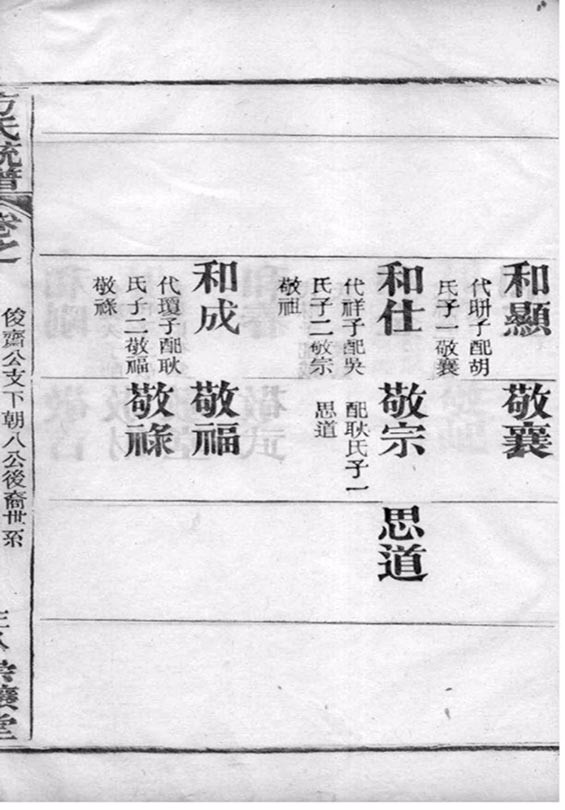 和顯
代子配胡
氏子一敬襄
敬襄
和仕
代祥子配吳
氏子二敬宗
敬祖
敬宗
配耿氏子一
思道
思道
和成
代瓊子配耿
氏子二敬福
敬祿
敬福
敬祿
方氏統譜
卷之
俊齋公支下朝八公後裔世系
堂